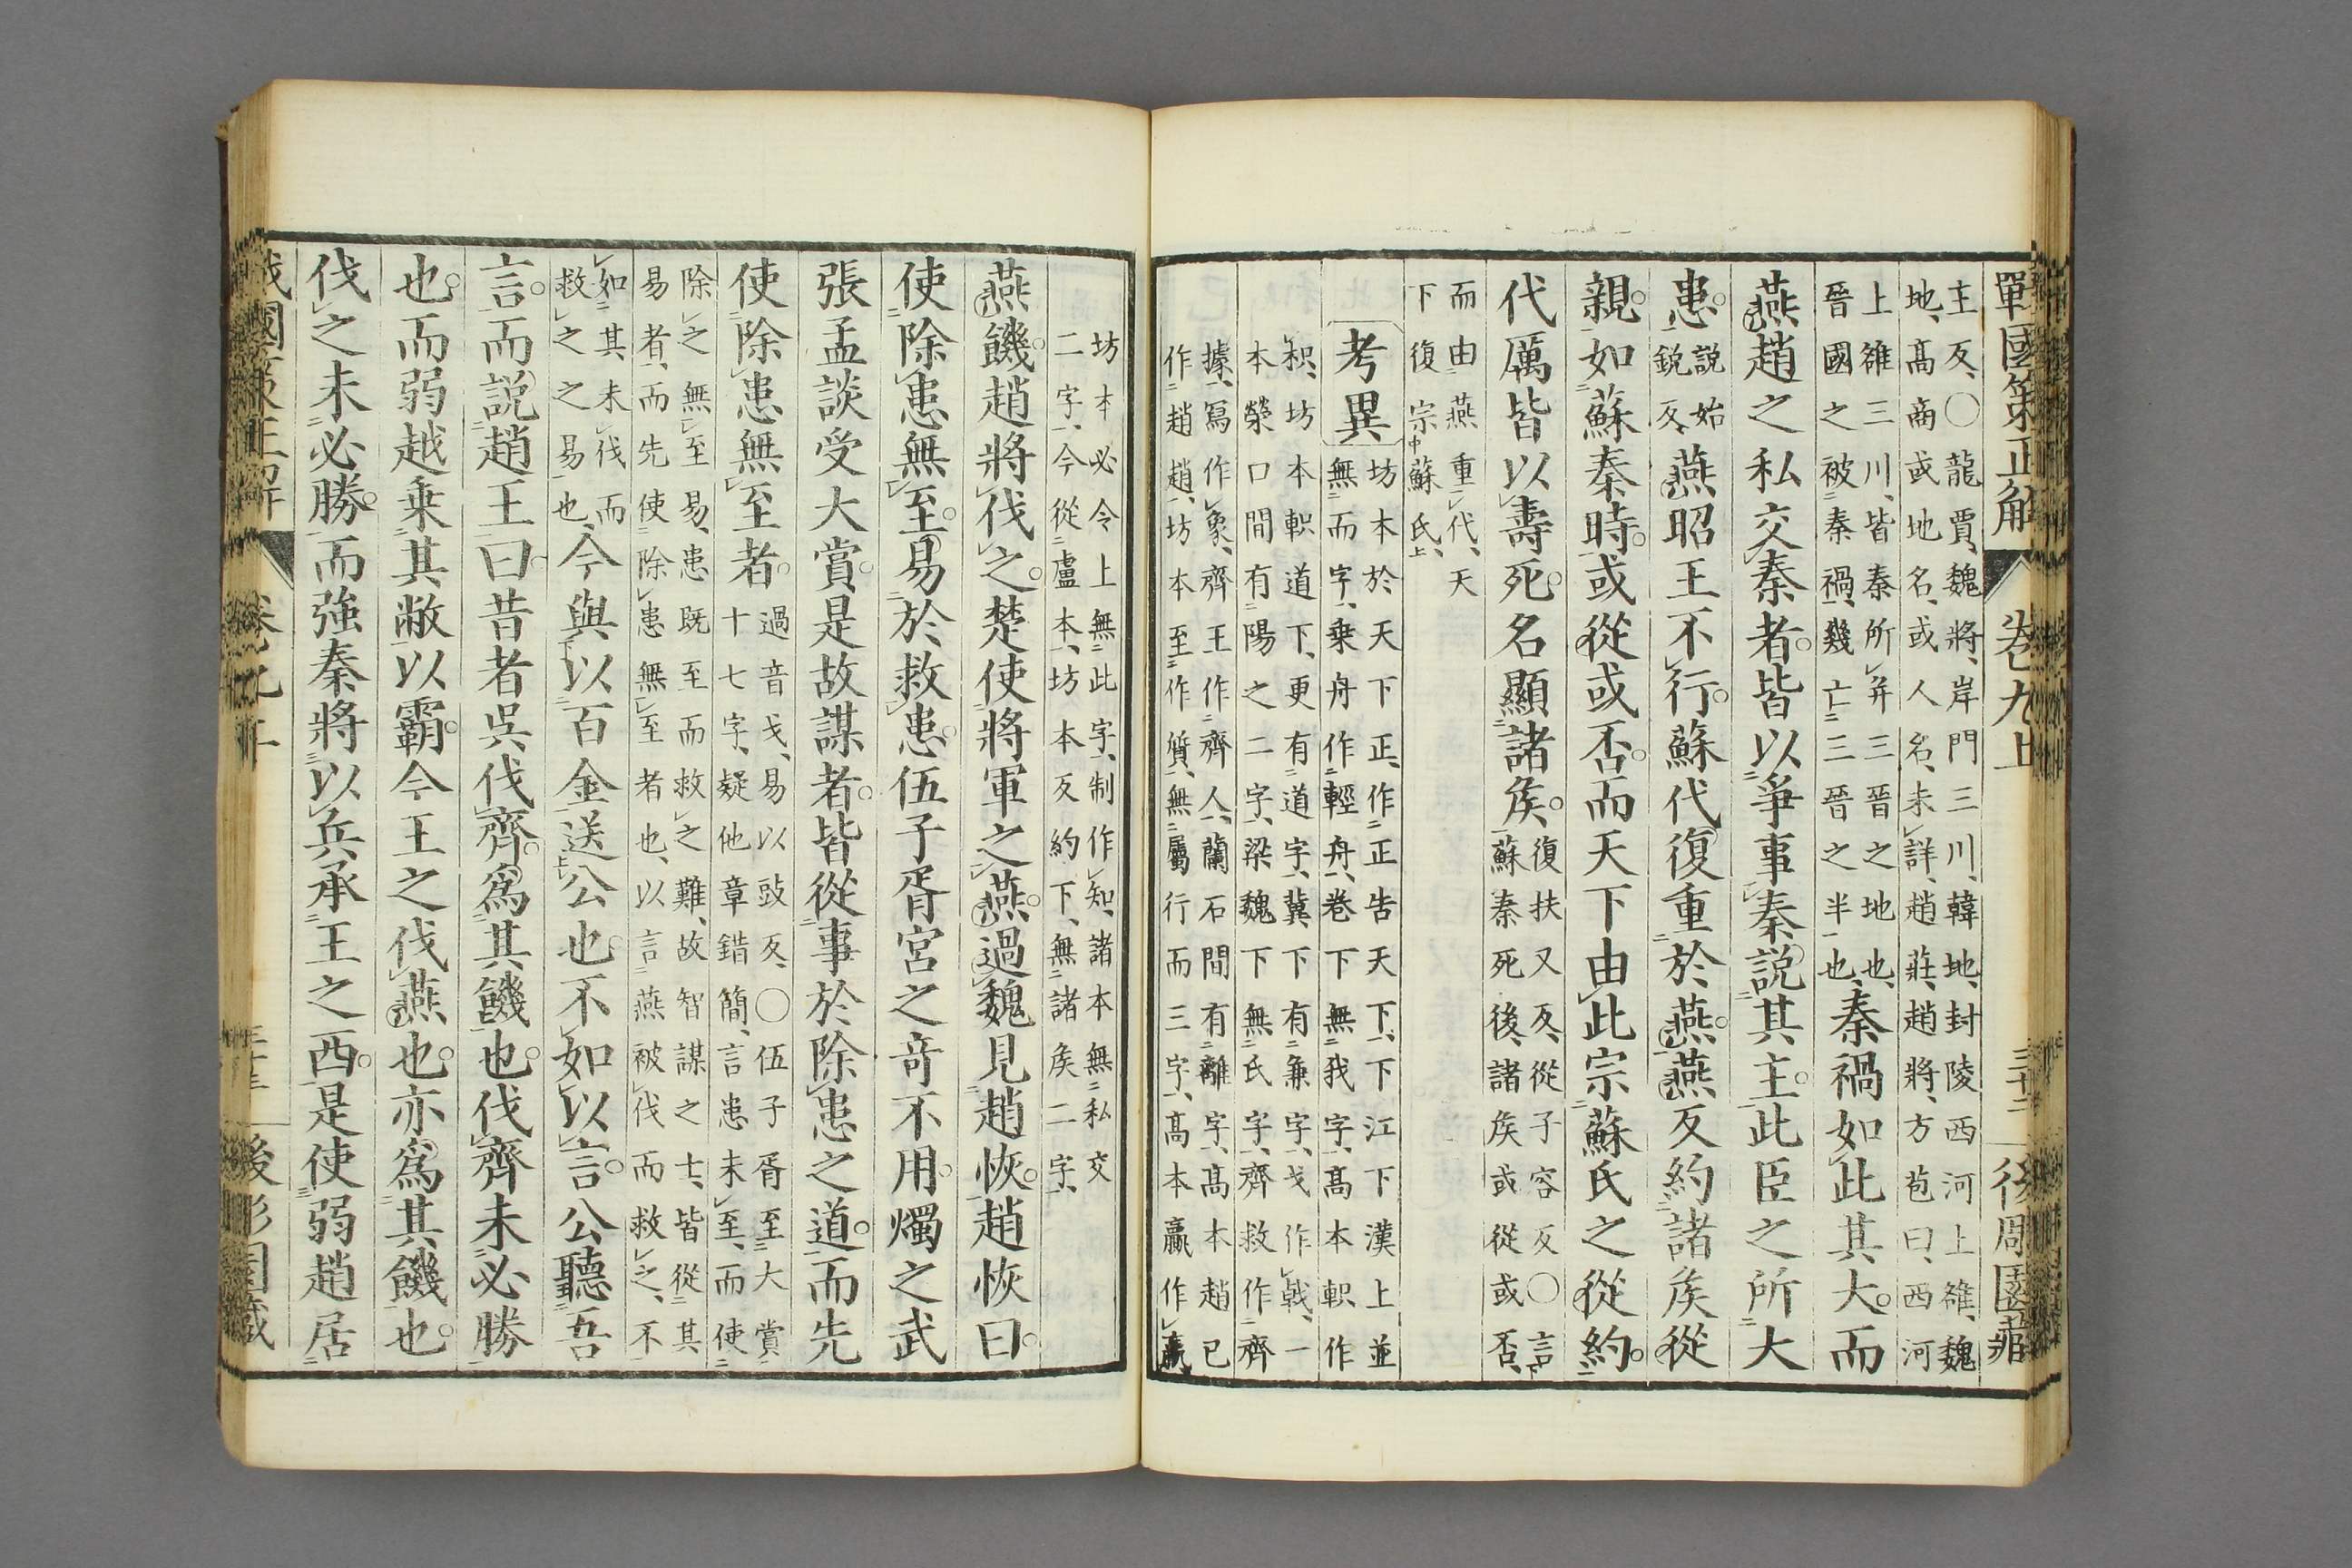 戰國策正解 卷九上 三十二 後凋園藏
主反、〇龍賈、魏將、岸門三川、韓地、封陵西河上雒、魏
地、高商或地名、或人名、未詳、趙莊、趙將、方苞曰、西河
上雒三川、皆秦所并三晉之地也、
晉國之被秦禍、幾亡三晉之半也、
秦禍如此其大。而
燕趙之私交秦者。皆以爭事秦說其主。此臣之所大
患。
說始
銳反、
燕昭王不行。蘇代復重於燕。燕反約諸矦從
親。如蘇秦時。或從或否。而天下由此宗蘇氏之從約。
代厲皆以壽死。名顯諸矦。
復扶又反、從子容反〇言
蘇秦死後、諸矦或從或否、
而由燕重代、天
下復宗中蘇氏上、
考異
坊本於天下正、作正告天下、下江下漢上並
無而字、乗舟作輕舟、卷下無我字、高本軹作
枳、坊本軹道下、更有道字、冀下有兼字、戈作戟、一
本滎口間有陽之二字、梁魏下無氏字、齊救作齊
據、寫作象、齊王作齊人、蘭石間有離字、高本趙已
作趙趙、坊本至作質、無屬行而三字、高本贏作嬴、
坊本必令上無此字、制作知、諸本無私交
二字、今從盧本、坊本反約下、無諸矦二字、
燕饑。趙將伐之。楚使將軍之燕。過魏見趙恢。趙恢曰。
使除患無至。易於救患。伍子胥宮之竒不用。燭之武
張孟談受大賞。是故謀者。皆從事於除患之道。而先
使除患無至者。
過音戈、易以豉反、〇伍子胥至大賞
十七字、疑他章錯簡、言患未至、而使
除之無至易、患既至而救之難、故智謀之士、皆從其
易者、而先使除患無至者也、以言燕被伐而救之、不
如其未伐而
救之之易也、
今與以百金送公也。不如以言。公聽吾
言。而說趙王曰。昔者吳伐齊。爲其饑也。伐齊未必勝
也。而弱越乗其敝以霸。今王之伐燕也。亦爲其饑也。
伐之未必勝。而強秦將以兵承王之西。是使弱趙居
戰國策正解 卷九上 三十三 後凋園藏